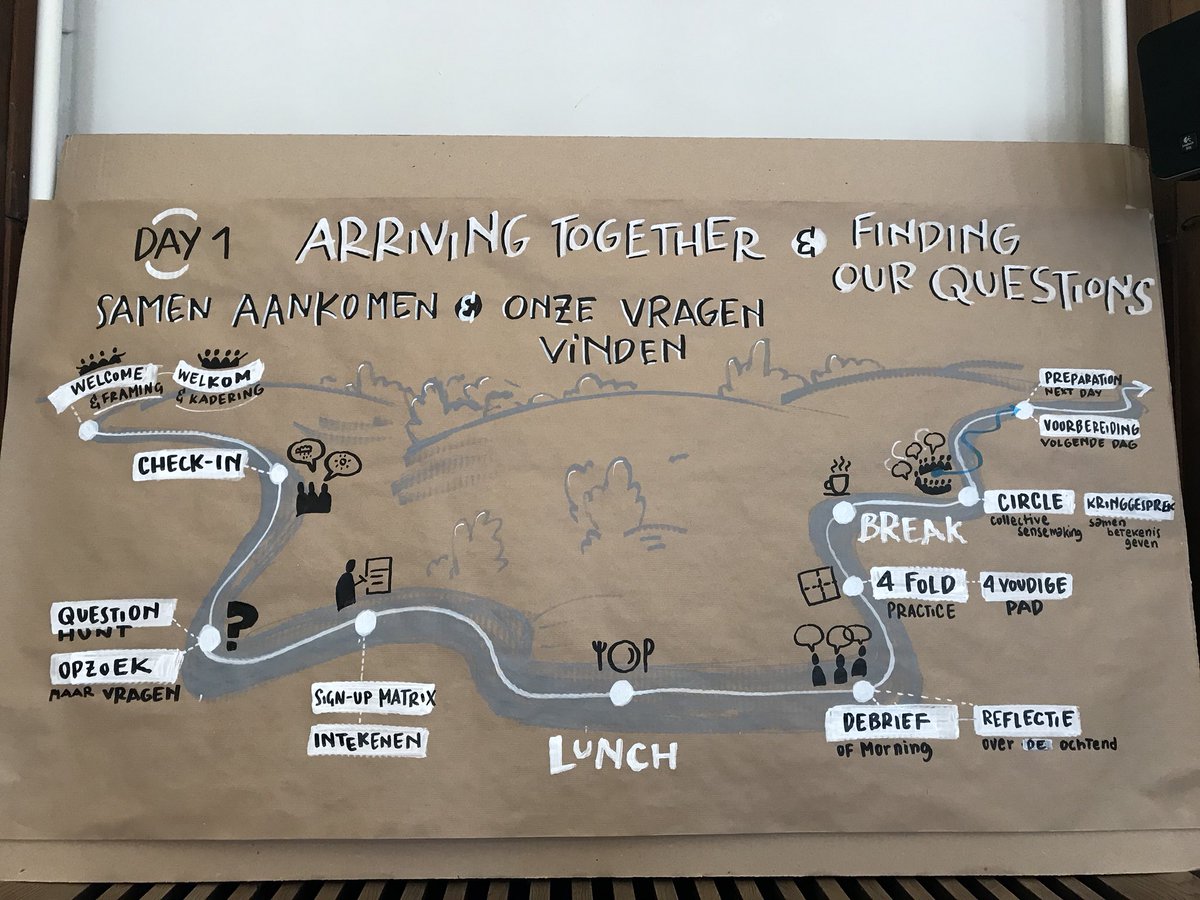 DAY 1
ARRIVING TOGETHER & FINDING
OUR QUESTIONS
SAMEN AANKOMEN & ONZE VRAGEN
VINDEN
WELCOME
& FRAMING
WELKOM
& KADERING
CHECK-IN
QUESTION
HUNT
?
OPZOEK
NAAR VRAGEN
SIGN-UP MATRIX
INTEKENEN
LUNCH
DEBRIEF
of Morning
REFLECTIE
over DE ochtend
4 FOLD
PRACTICE
4 VOUDIGE
PAD
BREAK
CIRCLE
collective
sensemaking
KRINGGESPREK
samen
betekenis
geven
PREPARATION
NEXT DAY
VOORBEREIDING
VOLGENDE DAG